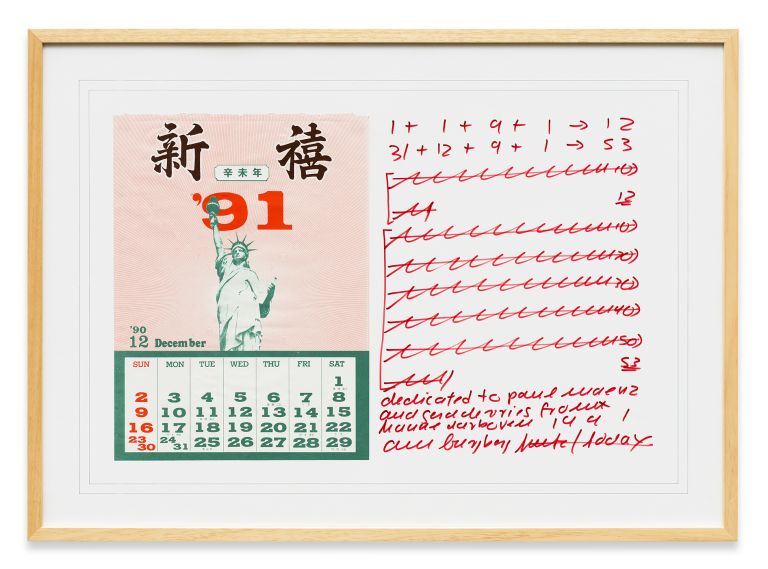 新 禧
辛未年
'91
'90
12 December
SUN MON TUE WED THU FRI SAT
1
2 3 4 5 6 7 8
9 10 11 12 13 14 15
16 17 18 19 20 21 22
23 24 25 26 27 28 29
30 31
1 + 1 + 9 + 1 → 12
31 + 12 + 9 + 1 → 53
10)
12
10)
20)
30)
40)
50)
53
dedicated to paul maenz
and gerd de vries from
hanne darboven 1991
am burgberg heute/today